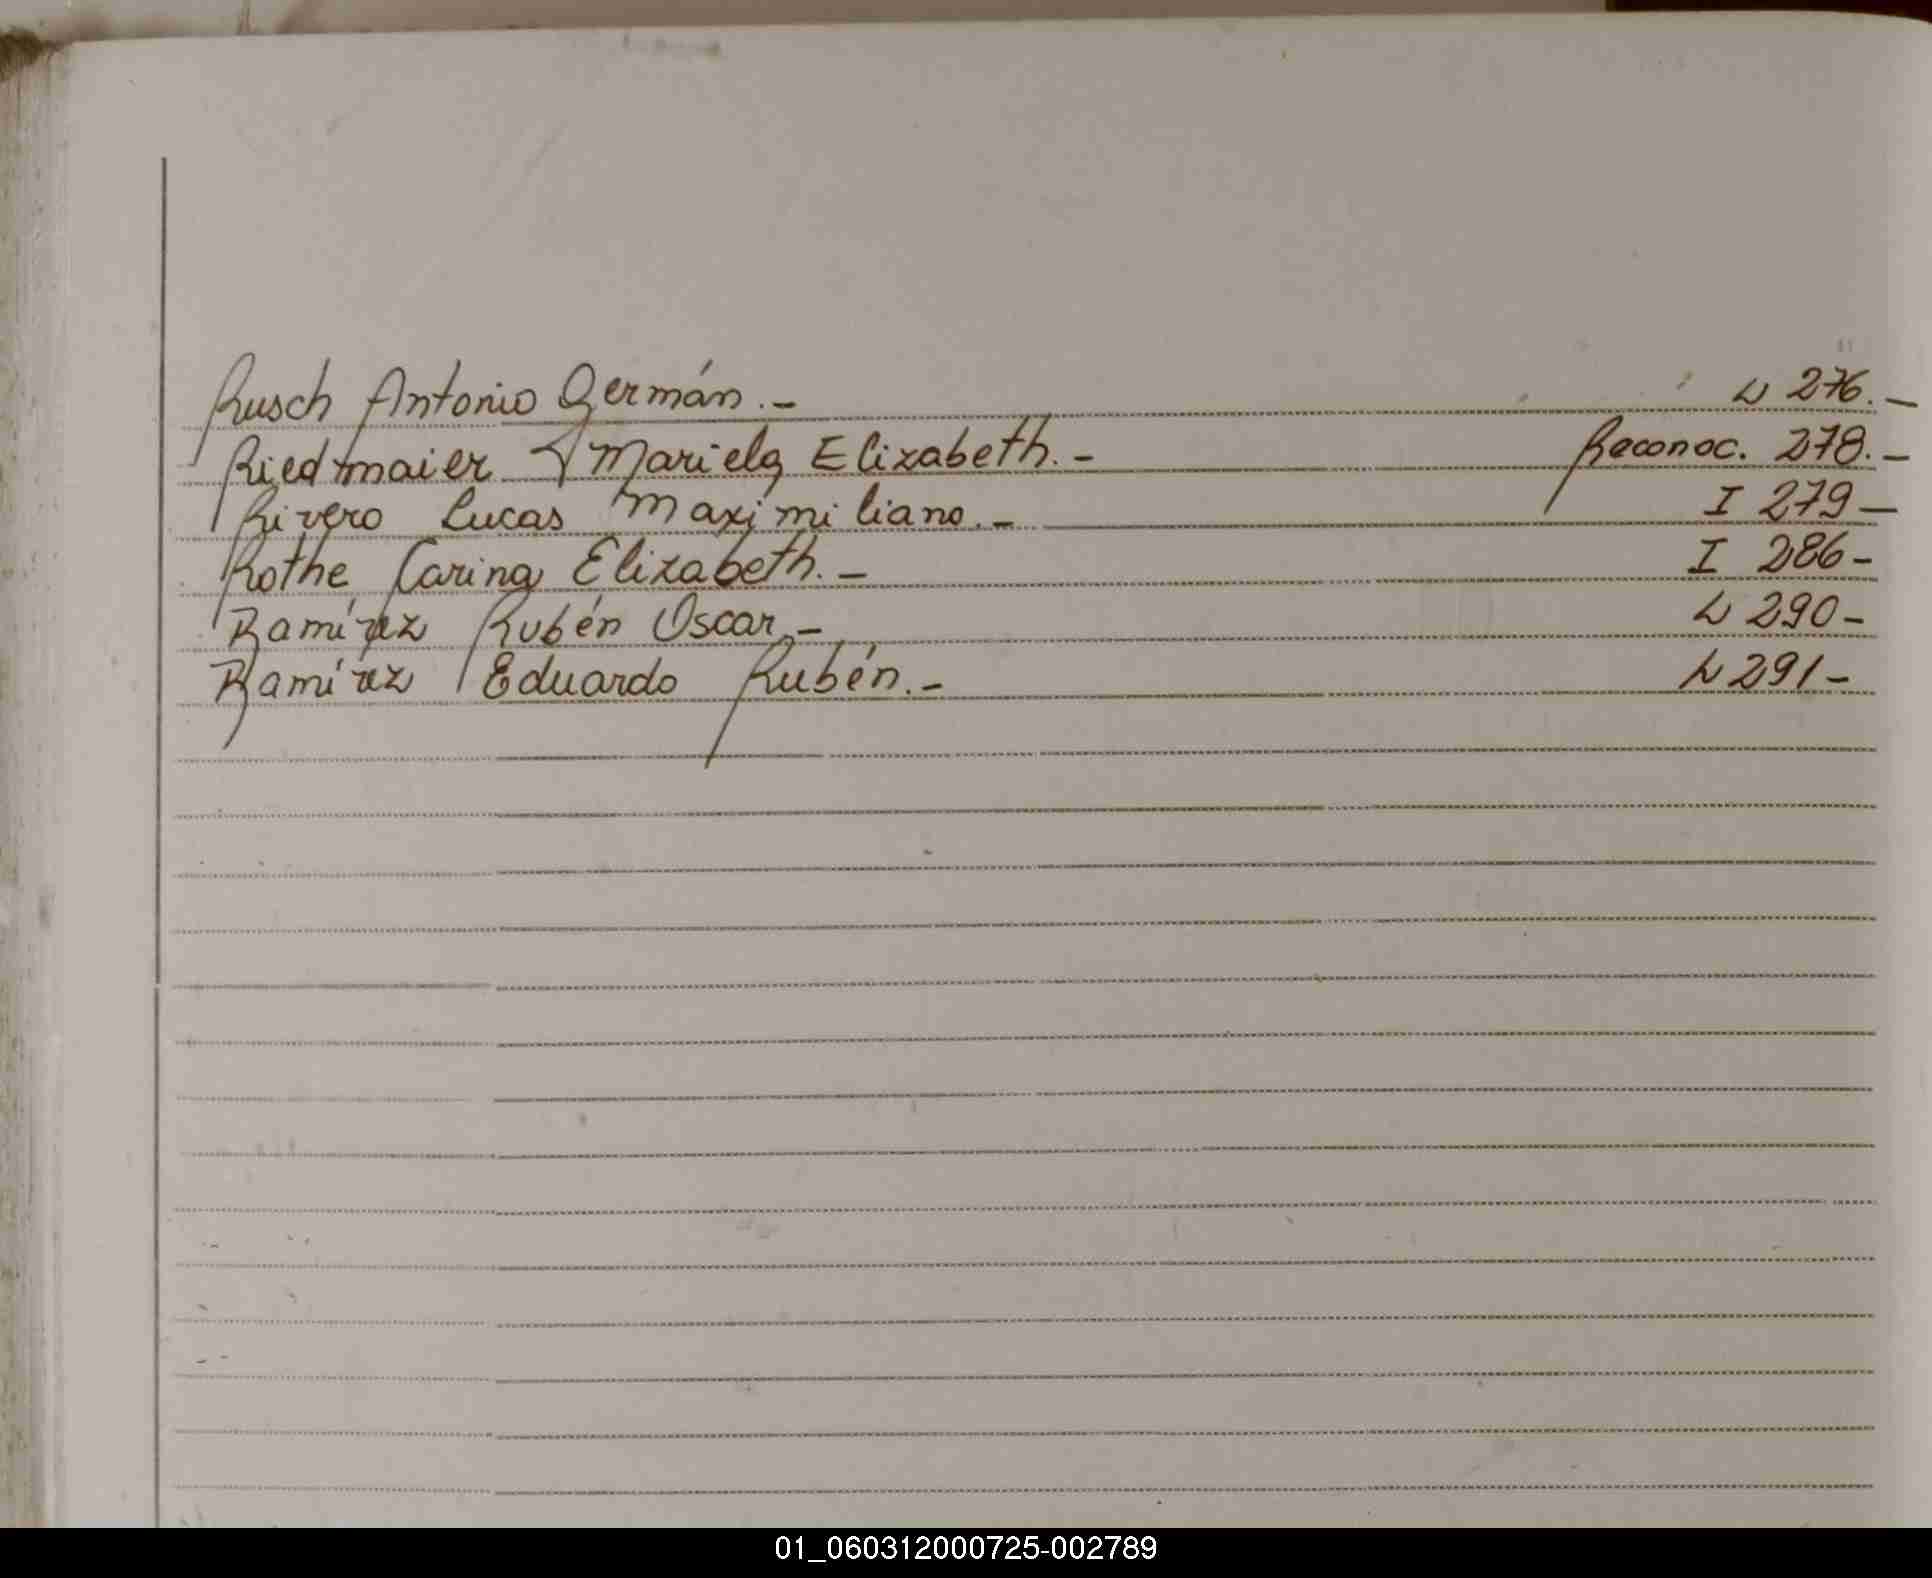 Rusch Antonio Germán.- L 276.-
Riedmaier Mariela Elizabeth.- Reconoc. 278.-
Rivero Lucas Maximiliano.- I 279-
Rothe Carina Elizabeth.- I 286-
Ramírez Rubén Oscar.- L 290-
Ramírez Eduardo Rubén.- L 291-
01_060312000725-002789